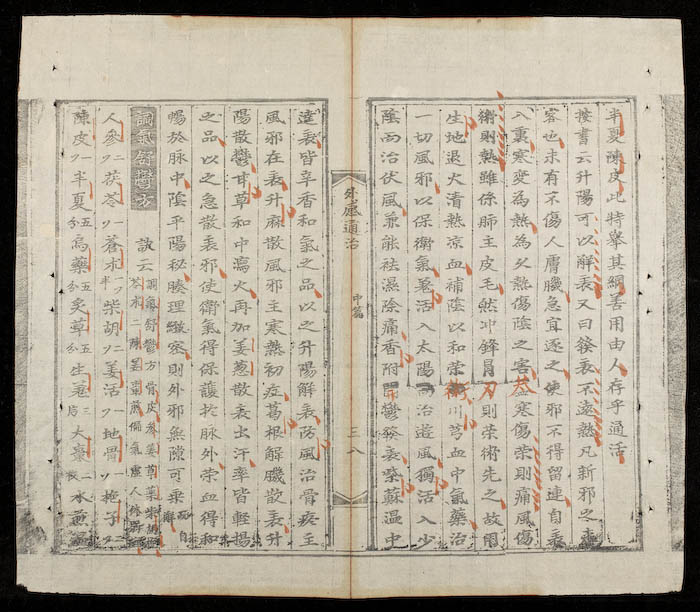 半夏陳皮此特舉其綱善用由人存乎通活
按書云升陽可以解表又曰發表不遠熱凡新邪
客也未有不傷人膚膜急宜逐之使邪不得留連自表
入裏寒變為熱為久熱傷陰之害盖寒傷荣則痛風傷
衛則熱雖係肺主皮毛然冲鋒冐刀則荣衛先之故用
生地退火清熱涼血補陰以和荣衛川芎血中氣藥治
一切風邪以保衛氣羗活入太陽而治遊風獨活入少
陰而治伏風兼能祛濕除痛香附開鬱發表紫蘇温中
外感通治
中篇
三八
達表皆辛香和氣之品以之升陽解表防風治骨疾主
風邪在表升麻散風邪主寒熱初症葛根解膜散表升
陽散鬱甘草和中瀉火再加姜葱散表出汗率皆輕揚
之品以之急散表邪使衛氣得保護於脉外荣血得和
暢於脉中陰平陽秘腠理緻密則外邪無隙可乘
調氣舒鬱方
訣云調氣舒鬱方骨皮參
人參二茯苓蒼朮柴胡二羗活地骨梔子
陳皮半夏五分烏藥五分炙草五分生薑三大棗二水煎